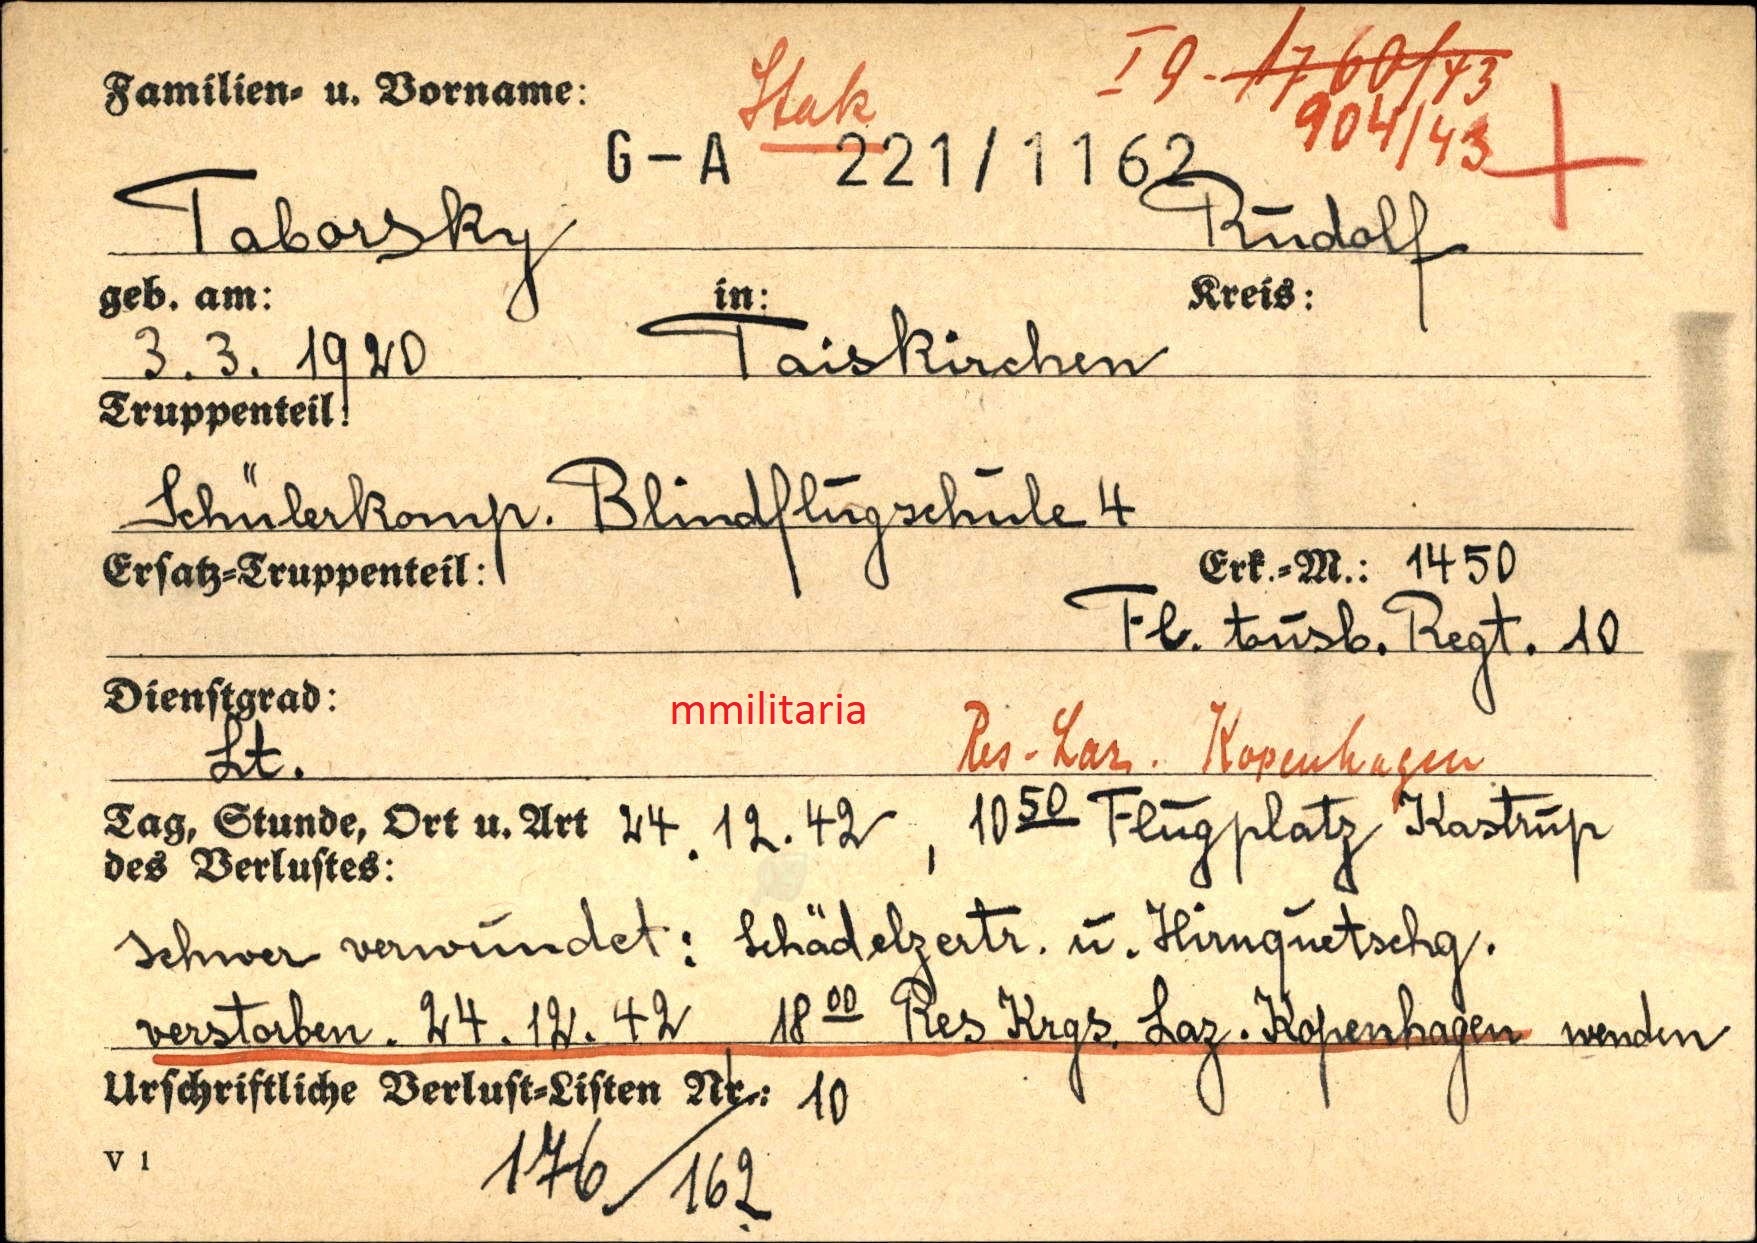 Stak
I 9. 1760/43
Familien- u. Vorname:
904/43
G-A 221/1162
Taborsky Rudolf
geb. am: in: Kreis:
3.3. 1920 Taiskirchen
Truppenteil:
Schülerkomp. Blindflugschule 4
Ersatz-Truppenteil: Erk.-M.: 1450
Fl. Ausb. Regt. 10
Dienstgrad:
mmilitaria
Lt. Res-Laz. Kopenhagen
Tag, Stunde, Ort u. Art 24.12.42, 10 50 Flugplatz Kastrup
des Verlustes:
schwer verwundet: Schädelzertr. u. Hirnquetschg.
verstorben. 24.12.42, 18 00 Res Krgs. Laz. Kopenhagen wenden
Urschriftliche Verlust-Listen Nr.: 10
V 1 176/162